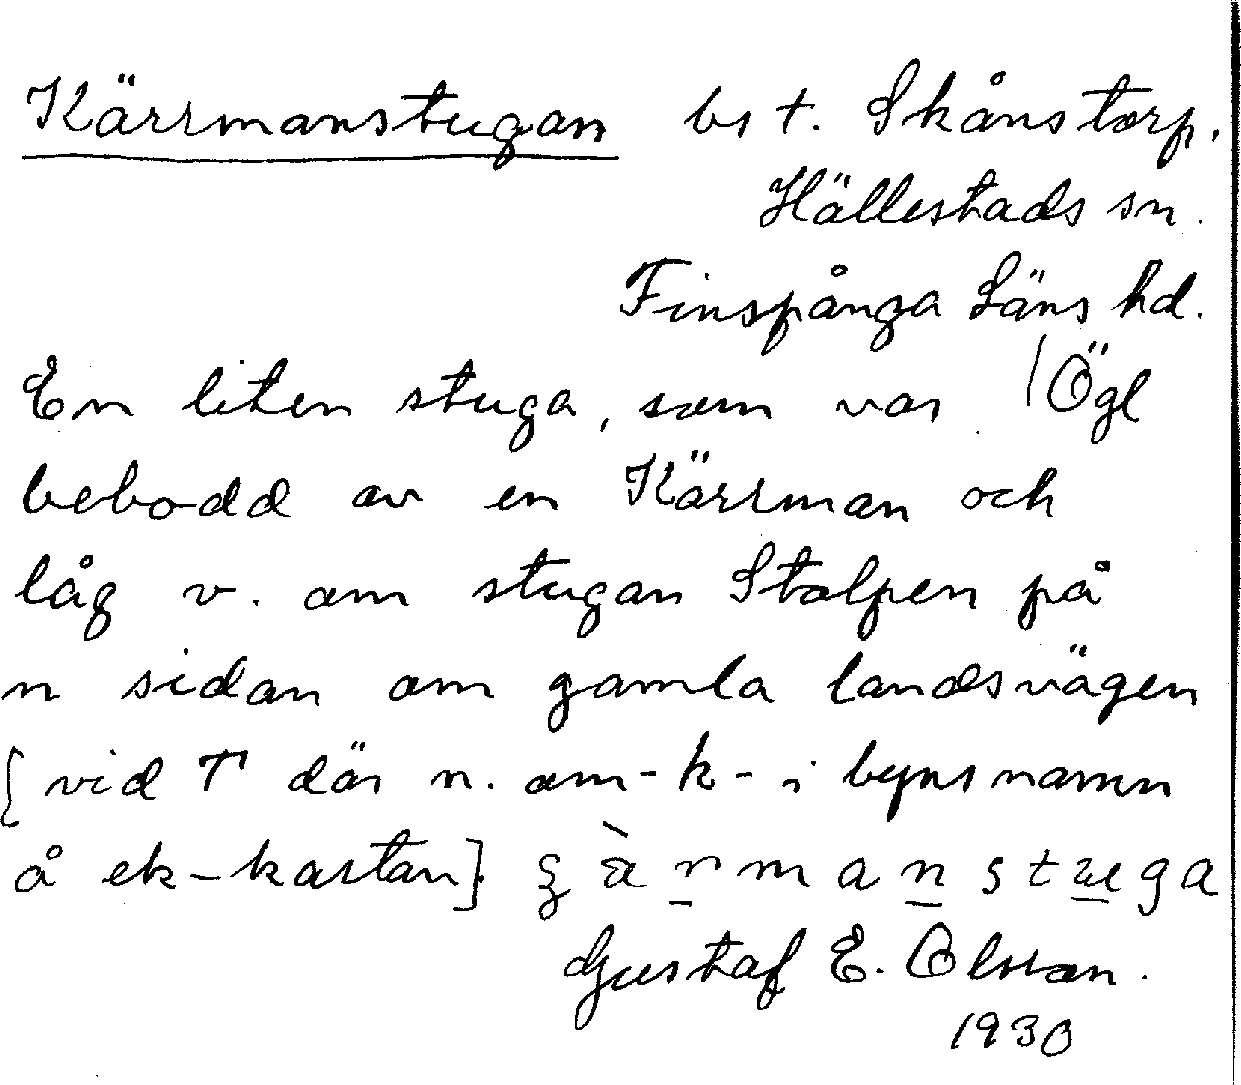 Kärrmanstugan bs t. Skånstorp.
Hällestads sn.
Finspånga Läns hd.
En liten stuga, som var /Ögl
bebodd av en Kärrman och
låg v. om stugan Stolpen på
n sidan om gamla landsvägen
[vid T där n. om -k- i bynsnamn
å ek-kartan]
Gustaf E. Olsson.
1930